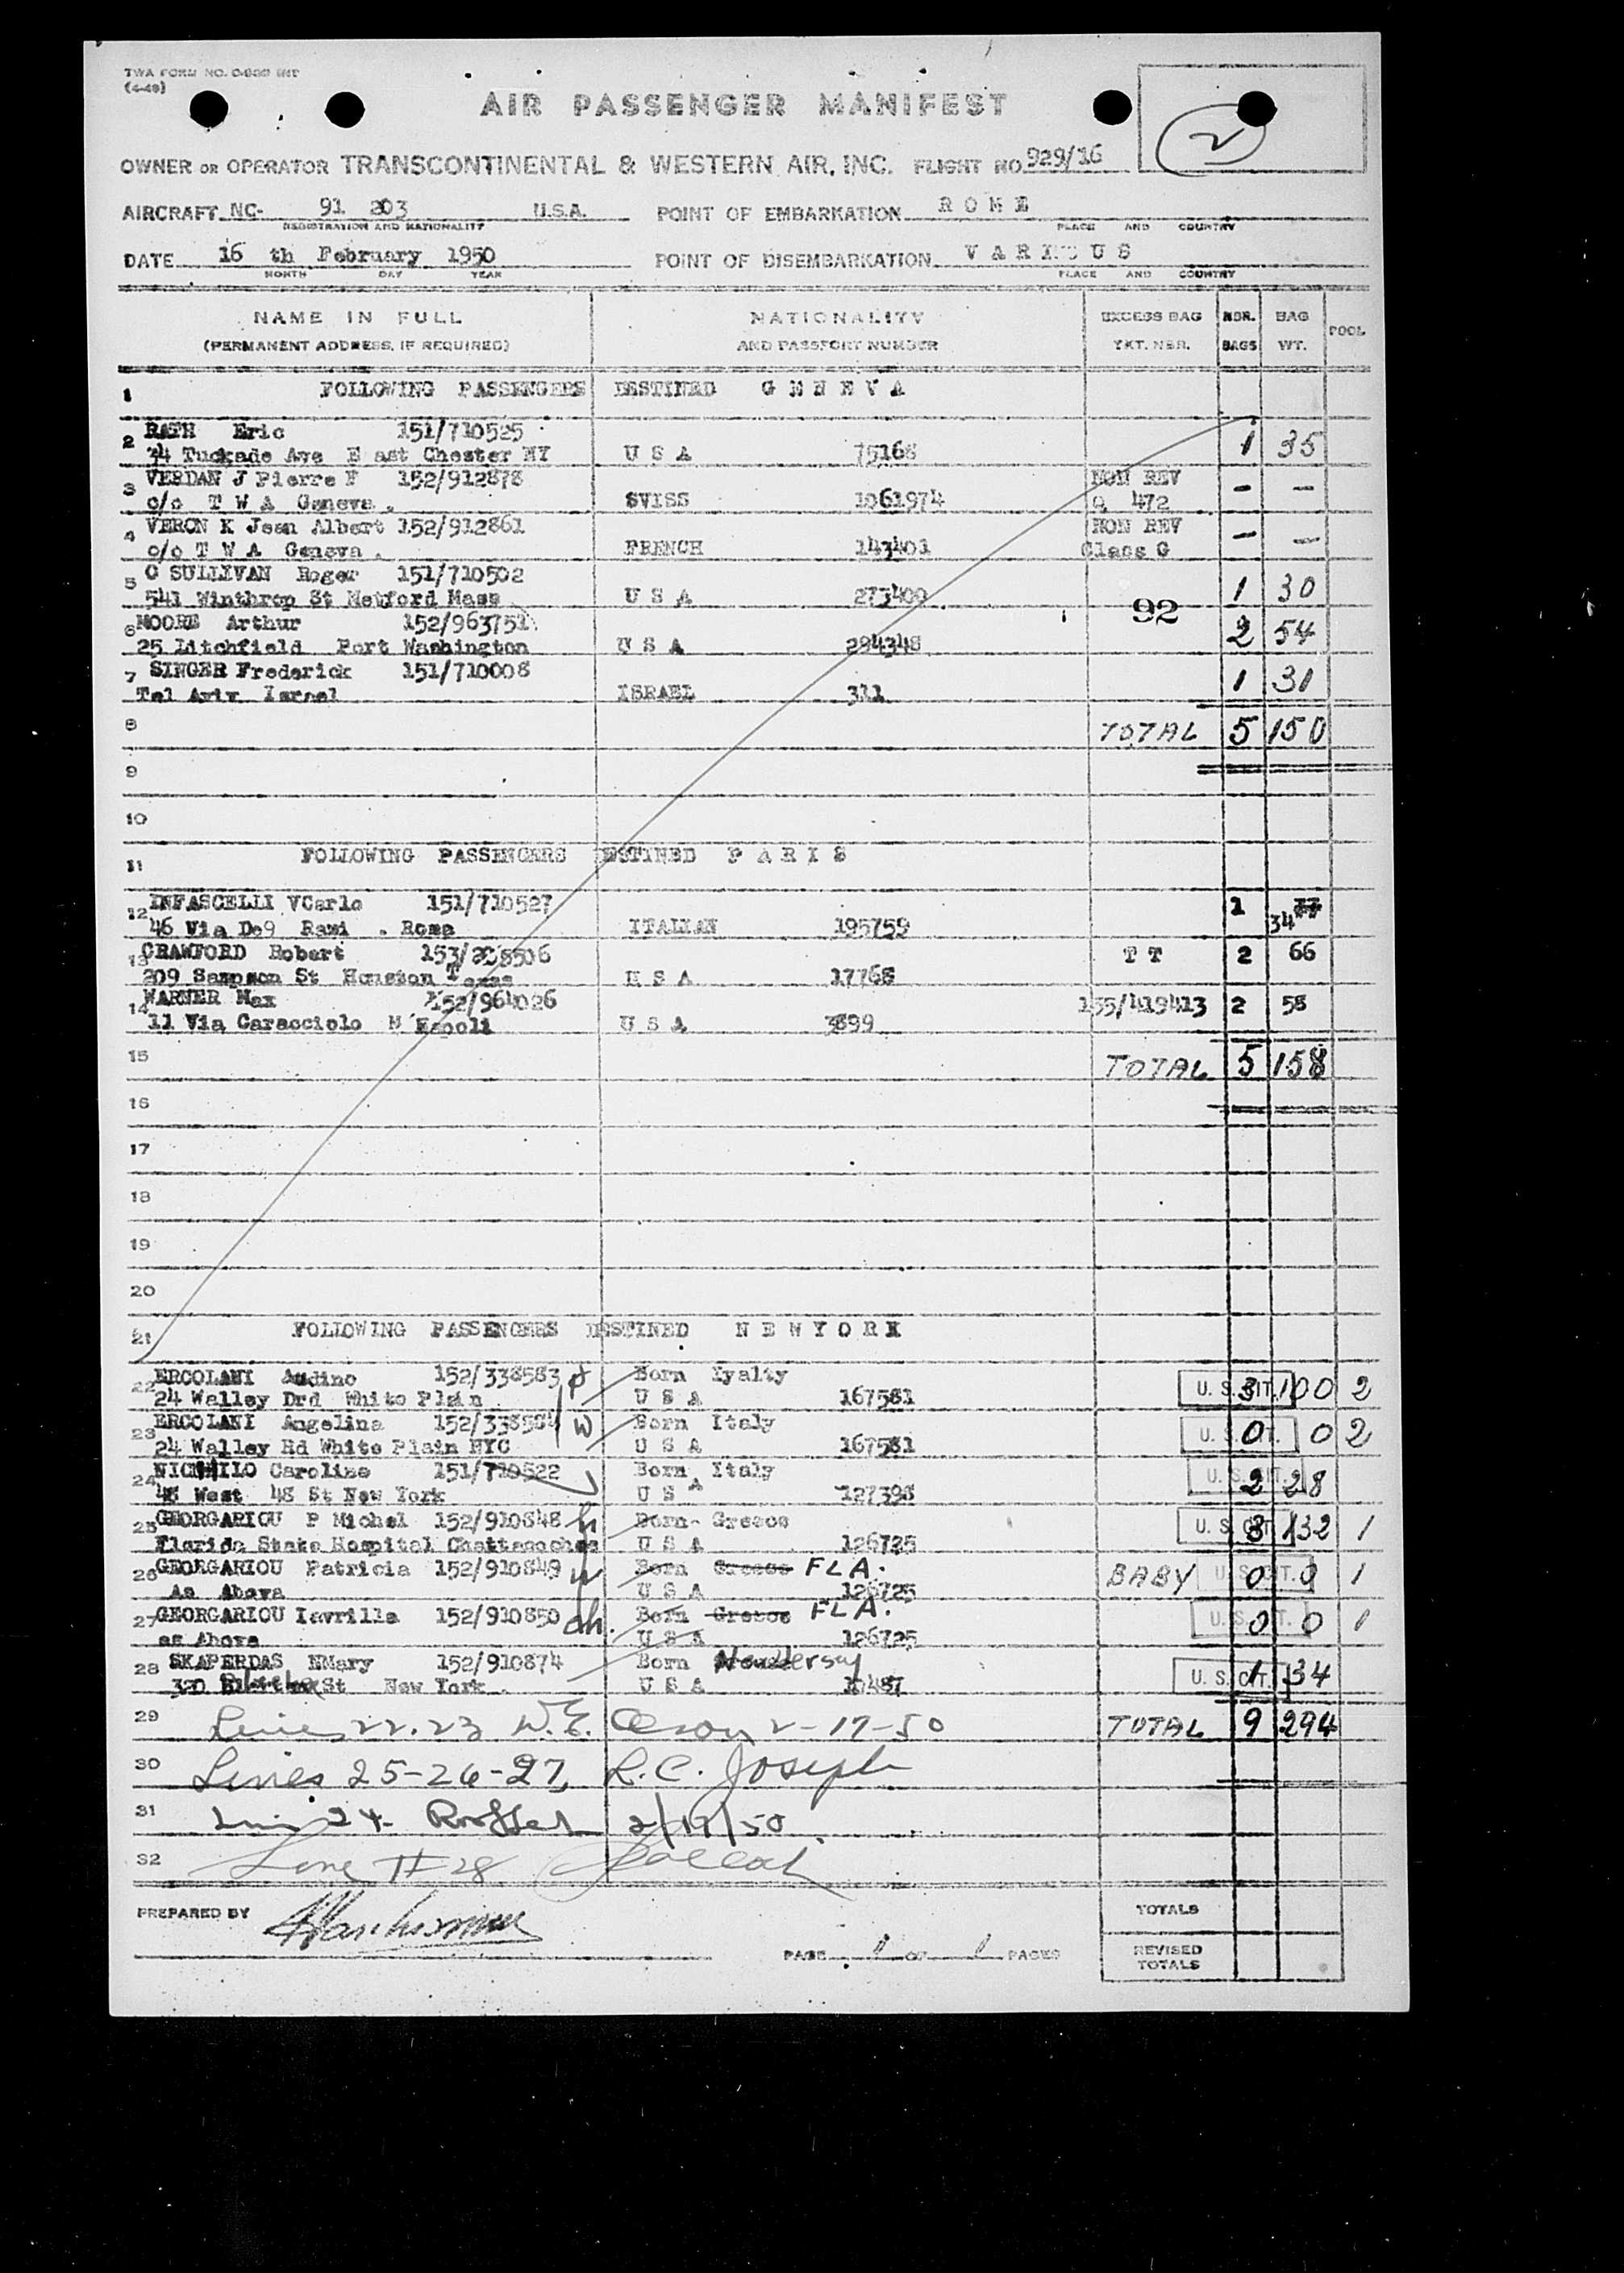 TWA FORM NO.
(4-49)
AIR PASSENGER MANIFEST
2
OWNER OR OPERATOR TRANSCONTINENTAL & WESTERN AIR, INC. FLIGHT NO 929/16
AIRCRAFT NC- 91 203 U.S.A. POINT OF EMBARKATION R O M E
REGISTRATION AND NATIONALITY PLACE AND COUNTRY
DATE 16 th February 1950 POINT OF DISEMBARKATION V A R I O U S
MONTH DAY YEAR PLACE AND COUNTRY
NAME IN FULL NATIONALITY EXCESS BAG NBR. BAG POOL
(PERMANENT ADDRESS, IF REQUIRED) AND PASSPORT NUMBER TKT. NBR. BAGS WT.
1 FOLLOWING PASSENGERS DESTINED G E N E V A
2 RATH Eric 151/710525 1 35
34 Tuckade Ave E ast Chester NY U S A 75168
3 VERDAN J Pierre F 152/912878 NON REV - -
c/o T W A Geneva . SVISS 1061974 Q 472
4 VERON K Jean Albert 152/912861 NON REV - -
c/o T W A Geneva . FRENCH 143401 Class G
5 O SULLIVAN Roger 151/710502 1 30
541 Winthrop St Metford Mass U S A 273400 92
6 MOORE Arthur 152/963751 2 54
25 Litchfield Port Washington U S A 284348
7 SINGER Frederick 151/710008 1 31
Tel Aviv Israel ISRAEL 311
8 TOTAL 5 150
9
10
11 FOLLOWING PASSENGERS DESTINED P A R I S
12 INFASCELLI VCarlo 151/710527 1 34
46 Via De9 Rami . Roma ITALIAN 195759
13 CRAWFORD Robert 153/228506 T T 2 66
209 Sampson St Houston Texas U S A 17768
14 WARNER Max 152/964026 155/419413 2 58
11 Via Caracciolo N Napoli U S A 3899
15 TOTAL 5 158
16
17
18
19
20
21 FOLLOWING PASSENGERS DESTINED N E W Y O R K
22 ERCOLANI Audino 152/338583 Born Iyalty U. S. CIT. 3 100 2
24 Walley Drd White Plain U S A 167581
23 ERCOLANI Angelina 152/338584 W Born Italy U. S. CIT. 0 0 2
24 Walley Rd White Plain NYC U S A 167581
24 NICHILO Caroline 151/710522 Born Italy U. S. CIT. 2 28
48 West 48 St New York U S A 127398
25 GEORGARIOU P Michel 152/910848 h Born- Greece U. S. CIT. 3 132 1
Florida State Hospital Chattaoochee U S A 126725
26 GEORGARIOU Patricia 152/910849 w Born Greece FLA. BABY U. S. CIT. 0 0 1
As Above U S A 126725
27 GEORGARIOU Iavrilla 152/910850 ch. Born Greece FLA. U. S. CIT. 0 0 1
as Above U S A 126725
28 SKAPERDAS NMary 152/910874 Born New Jersey U. S. CIT. 1 34
320 St New York . U S A 10487
29 Lines 22.23 W.E. Olson 2-17-50 TOTAL 9 294
30 Lines 25-26-27, L.C. Joseph
31 Line 24 2/17/50
32 Line # 28
PREPARED BY
TOTALS
PAGE 1 OF 1 PAGES
REVISED
TOTALS